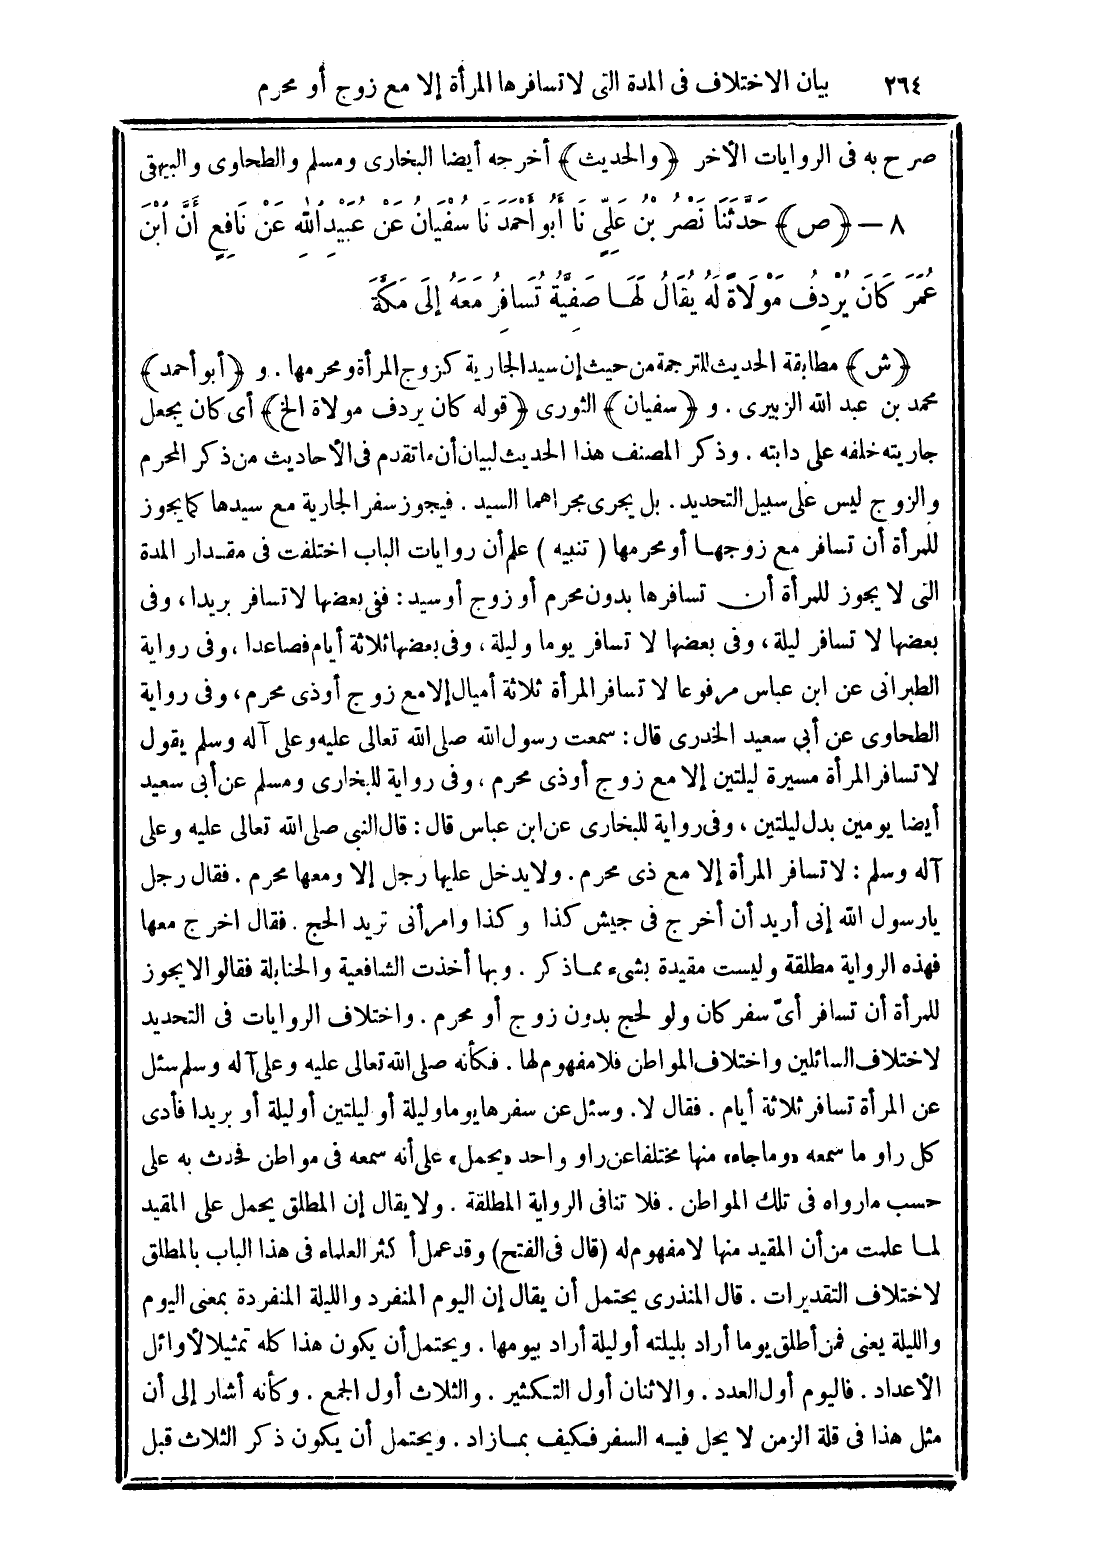 ٢٦٤ بيان الاختلاف فى المدة التى لا تسافرها المرأة إلا مع زوج أو محرم
صرح به فى الروايات الأخر ﴿والحديث﴾ أخرجه أيضا البخارى ومسلم والطحاوى والبيهقى
٨ – ﴿ص﴾ حَدَّثَنَا نَصْرُ بْنُ عَلِيٍّ نَا أَبُو أَحْمَدَ نَا سُفْيَانُ عَنْ عُبَيْدِ اللهِ عَنْ نَافِعٍ أَنَّ ابْنَ
عُمَرَ كَانَ يُرْدِفُ مَوْلَاةً لَهُ يُقَالُ لَهَا صَفِيَّةُ تُسَافِرُ مَعَهُ إِلَى مَكَّةَ
﴿ش﴾ مطابقة الحديث للترجمة من حيث إن سيد الجارية كزوج المرأة ومحرمها . و ﴿أبو أحمد﴾
محمد بن عبد الله الزبيرى . و ﴿سفيان﴾ الثورى ﴿قوله كان يردف مولاة الخ﴾ أى كان يجعل
جاريته خلفه على دابته . وذكر المصنف هذا الحديث لبيان أن ما تقدم فى الأحاديث من ذكر المحرم
والزوج ليس على سبيل التحديد . بل يجرى مجراهما السيد . فيجوز سفر الجارية مع سيدها كما يجوز
للمرأة أن تسافر مع زوجها أو محرمها ( تنبيه ) علم أن روايات الباب اختلفت فى مقدار المدة
التى لا يجوز للمرأة أن تسافرها بدون محرم أو زوج أو سيد : ففى بعضها لا تسافر بريدا ، وفى
بعضها لا تسافر ليلة ، وفى بعضها لا تسافر يوما وليلة ، وفى بعضها ثلاثة أيام فصاعدا ، وفى رواية
الطبرانى عن ابن عباس مرفوعا لا تسافر المرأة ثلاثة أميال إلا مع زوج أو ذى محرم ، وفى رواية
الطحاوى عن أبي سعيد الخدرى قال : سمعت رسول الله صلى الله تعالى عليه وعلى آله وسلم يقول
لا تسافر المرأة مسيرة ليلتين إلا مع زوج أو ذى محرم ، وفى رواية للبخارى ومسلم عن أبى سعيد
أيضا يومين بدل ليلتين ، وفى رواية للبخارى عن ابن عباس قال : قال النبي صلى الله تعالى عليه وعلى
آله وسلم : لا تسافر المرأة إلا مع ذى محرم . ولا يدخل عليها رجل إلا ومعها محرم . فقال رجل
يا رسول الله إنى أريد أن أخرج فى جيش كذا وكذا وامرأتى تريد الحج . فقال اخرج معها
فهذه الرواية مطلقة وليست مقيدة بشىء مما ذكر . وبها أخذت الشافعية والحنابلة فقالوا لا يجوز
للمرأة أن تسافر أىّ سفر كان ولو لحج بدون زوج أو محرم . واختلاف الروايات فى التحديد
لاختلاف السائلين واختلاف المواطن فلا مفهوم لها . فكأنه صلى الله تعالى عليه وعلى آله وسلم سئل
عن المرأة تسافر ثلاثة أيام . فقال لا . وسئل عن سفرها يوما وليلة أو ليلتين أو ليلة أو بريدا فأدى
كل راو ما سمعه «وما جاء» منها مختلفا عن راو واحد «يحمل» على أنه سمعه فى مواطن فحدث به على
حسب ما رواه فى تلك المواطن . فلا تنافى الرواية المطلقة . ولا يقال إن المطلق يحمل على المقيد
لما علمت من أن المقيد منها لا مفهوم له (قال فى الفتح) وقد عمل أكثر العلماء فى هذا الباب بالمطلق
لاختلاف التقديرات . قال المنذرى يحتمل أن يقال إن اليوم المنفرد والليلة المنفردة بمعنى اليوم
والليلة يعنى فمن أطلق يوما أراد بليلته أو ليلة أراد بيومها . ويحتمل أن يكون هذا كله تمثيلا لأوائل
الأعداد . فاليوم أول العدد . والاثنان أول التكثير . والثلاث أول الجمع . وكأنه أشار إلى أن
مثل هذا فى قلة الزمن لا يحل فيه السفر فكيف بما زاد . ويحتمل أن يكون ذكر الثلاث قبل